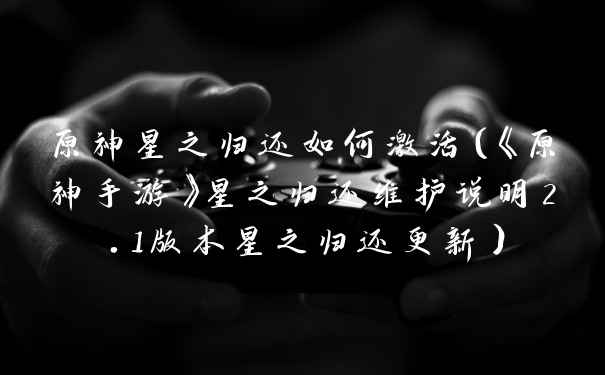 原神星之归还如何激活(《原
神手游》星之归还维护说明2
.1版本星之归还更新)